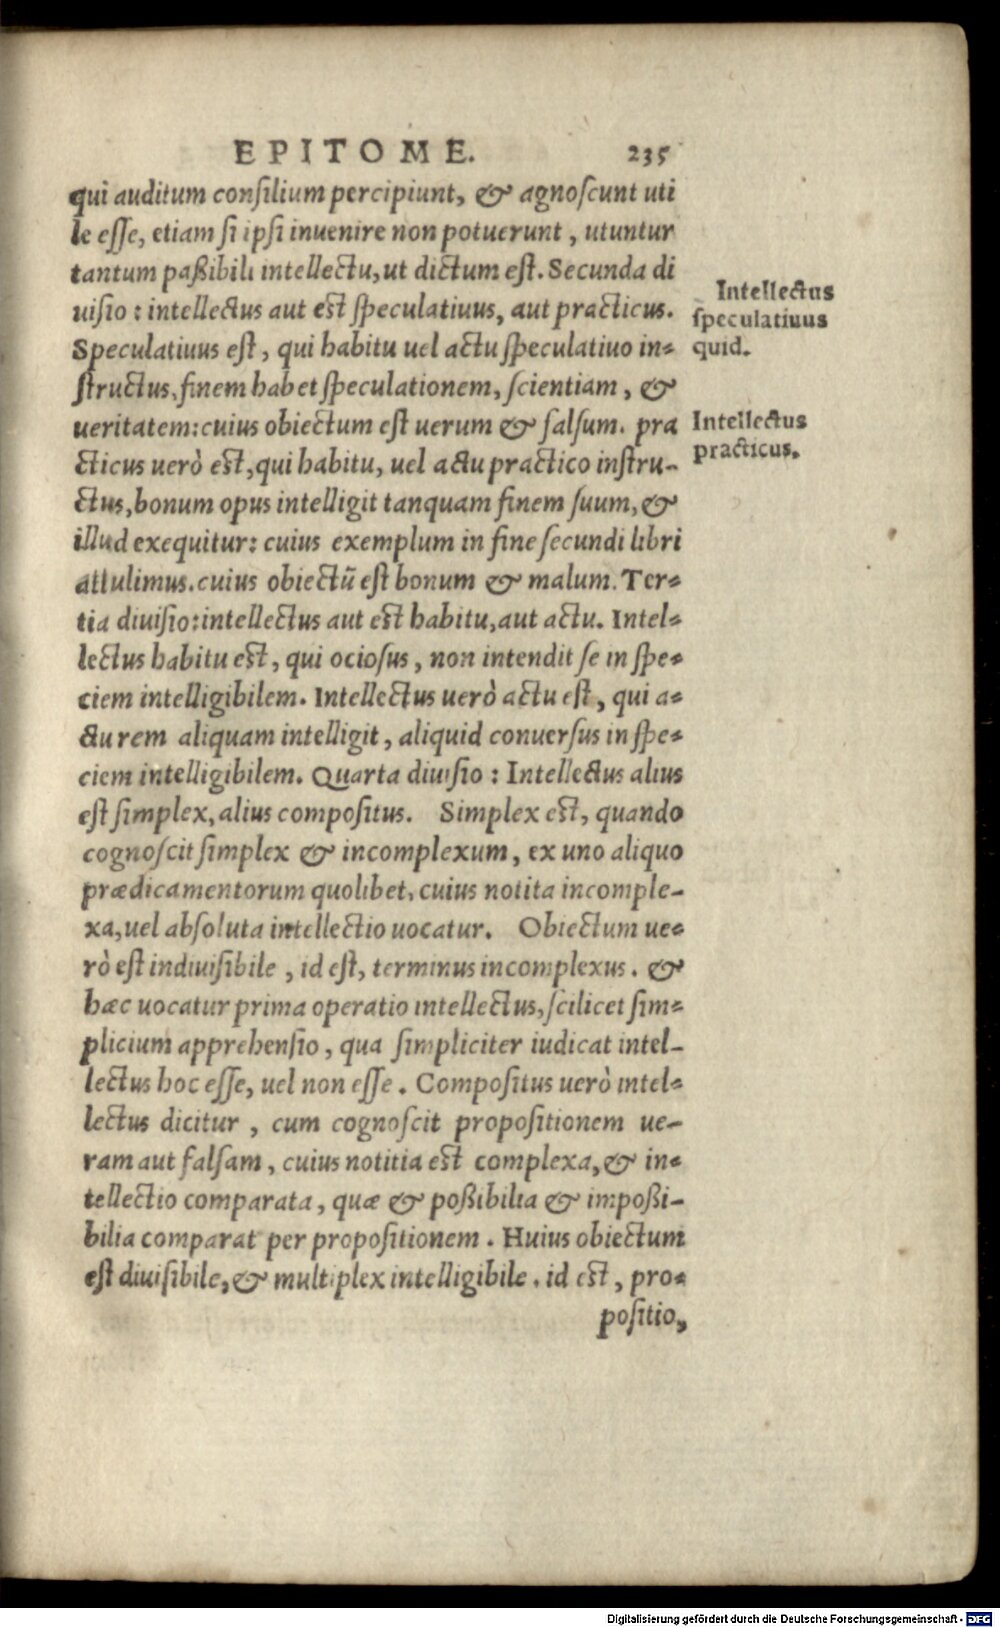 EPITOME. 235
qui auditum consilium percipiunt, & agnoſcunt uti
le eſſe, etiam ſi ipſi inuenire non potuerunt, utuntur
tantum paßibili intellectu, ut dictum eſt. Secunda di
uiſio: intellectus aut eſt ſpeculatiuus, aut practicus.
Intellectus
ſpeculatiuus
quid.
Speculatiuus eſt, qui habitu uel actu ſpeculatiuo in-
ſtructus, finem habet ſpeculationem, ſcientiam, &
ueritatem: cuius obiectum eſt uerum & falſum. pra
Intellectus
practicus.
cticus uerò eſt, qui habitu, uel actu practico inſtru-
ctus, bonum opus intelligit tanquam finem ſuum, &
illud exequitur: cuius exemplum in fine ſecundi libri
attulimus. cuius obiectũ eſt bonum & malum. Ter-
tia diuiſio: intellectus aut eſt habitu, aut actu. Intel-
lectus habitu eſt, qui ocioſus, non intendit ſe in ſpe-
ciem intelligibilem. Intellectus uerò actu eſt, qui a-
ctu rem aliquam intelligit, aliquid conuerſus in ſpe-
ciem intelligibilem. Quarta diuiſio: Intellectus alius
eſt ſimplex, alius compoſitus. Simplex eſt, quando
cognoſcit ſimplex & incomplexum, ex uno aliquo
prædicamentorum quolibet, cuius notita incomple-
xa, uel abſoluta intellectio uocatur. Obiectum ue-
rò eſt indiuiſibile, id eſt, terminus incomplexus. &
hæc uocatur prima operatio intellectus, ſcilicet ſim-
plicium apprehenſio, qua ſimpliciter iudicat intel-
lectus hoc eſſe, uel non eſſe. Compoſitus uerò intel-
lectus dicitur, cum cognoſcit propoſitionem ue-
ram aut falſam, cuius notitia eſt complexa, & in-
tellectio comparata, quæ & poßibilia & impoßi-
bilia comparat per propoſitionem. Huius obiectum
eſt diuiſibile, & multiplex intelligibile. id eſt, pro-
poſitio,
Digitalisierung gefördert durch die Deutsche Forschungsgemeinschaft - DFG